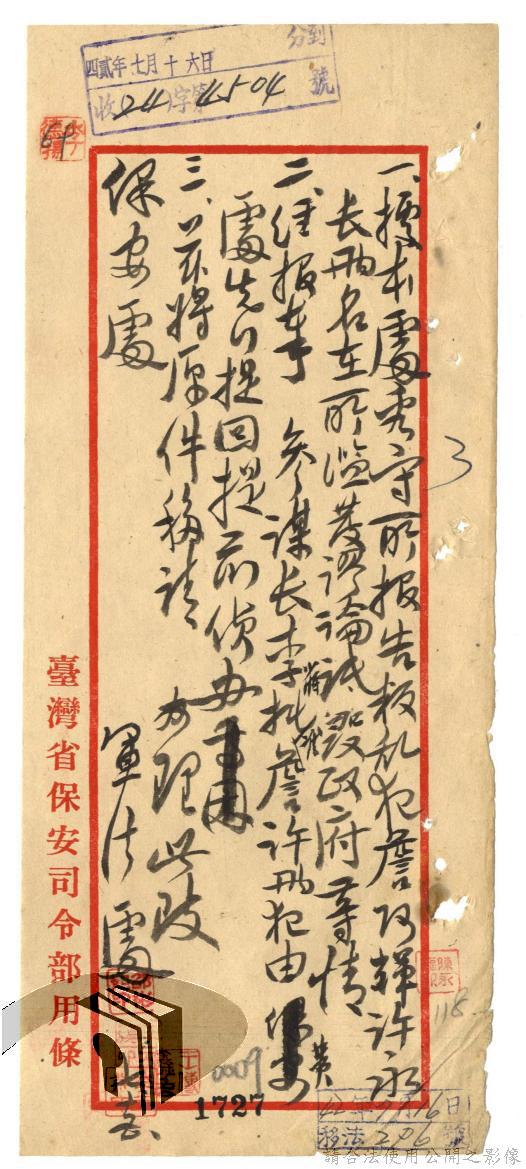 四貳年七月十六日
收24字第4504號
一、據本處看守所報告叛乱犯詹阿輝許永
長兩名在所濫發謬論詆毀政府等情
二、經報奉 參謀長李少將批詹許兩犯由保安
處先行提回提前偵办
三、茲將原件移請 办理此致
保安處
軍法處
臺灣省保安司令部用條
3
118
0009
1727
請合法使用公開之影像